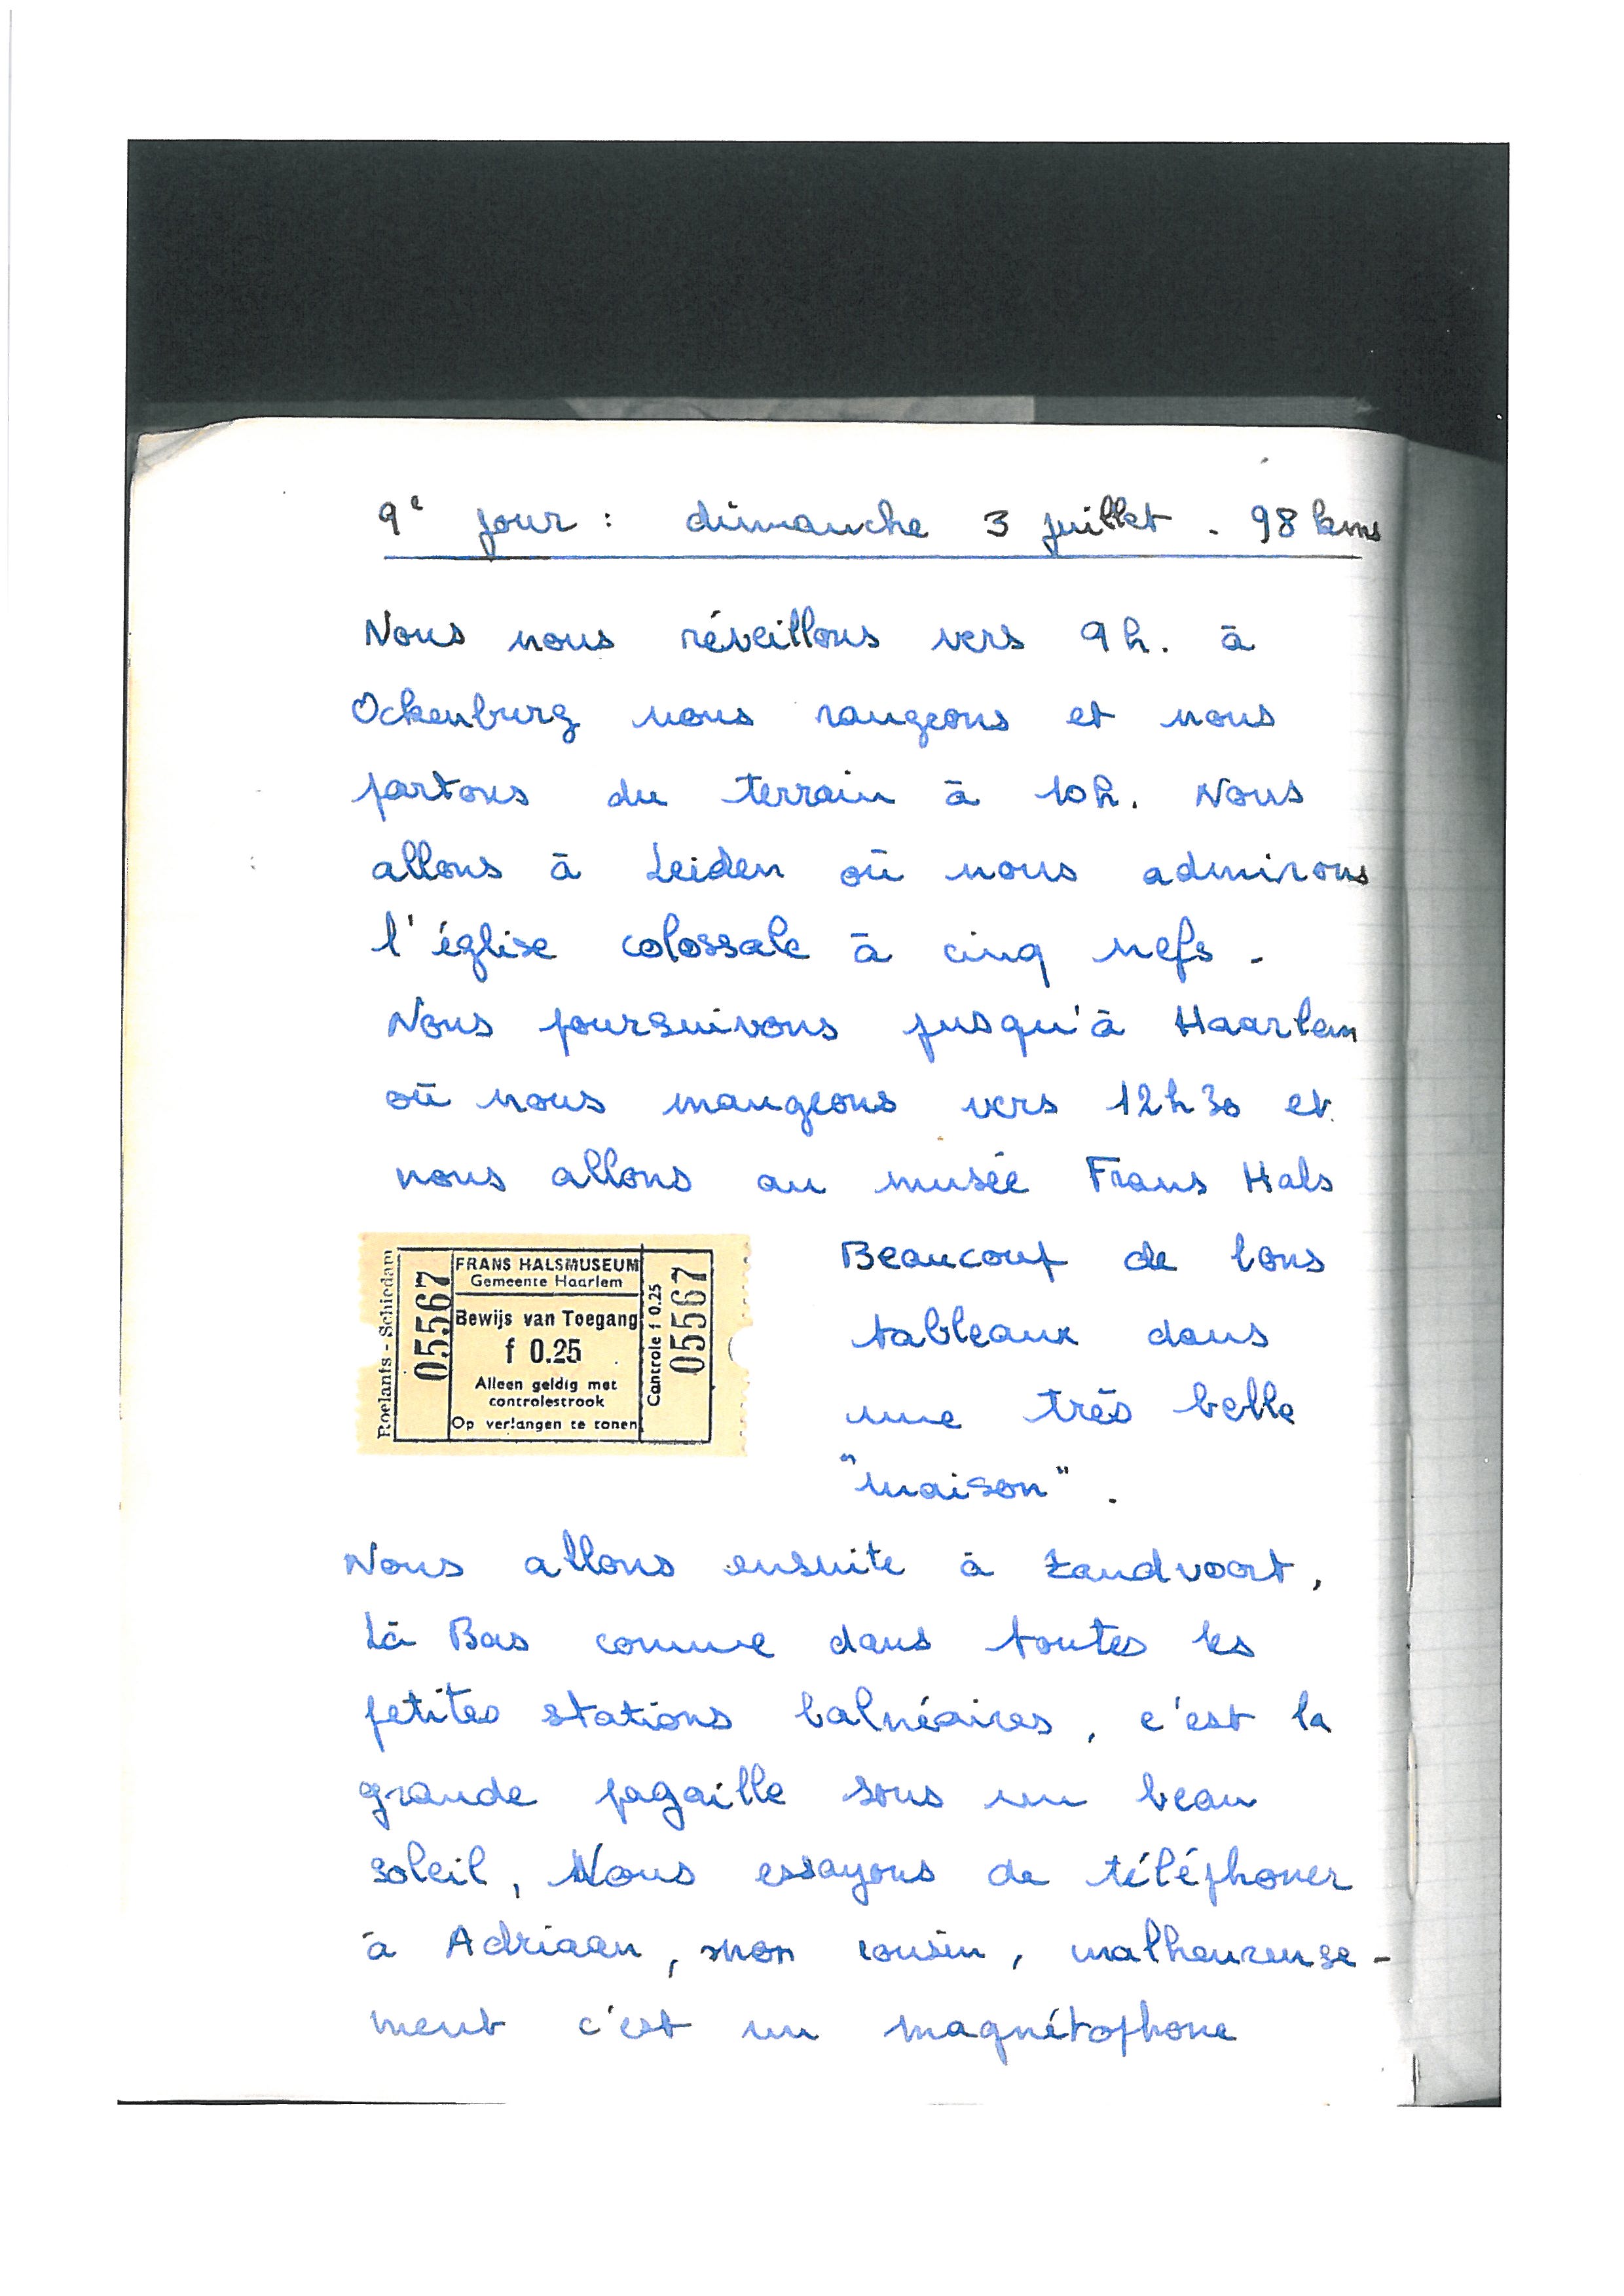 9e jour : dimanche 3 juillet - 98 kms
Nous nous réveillons vers 9h. à
Ockenburg nous rangeons et nous
partons du terrain à 10h. Nous
allons à Leiden où nous admirons
l'église colossale à cinq nefs.
Nous poursuivons jusqu'à Haarlem
où nous mangeons vers 12h30 et
nous allons au musée Frans Hals
Roelants - Schiedam
05567
FRANS HALSMUSEUM
Gemeente Haarlem
Bewijs van Toegang
f 0.25
Alleen geldig met
controlestrook
Op verlangen te tonen
Controle f 0.25
05567
Beaucoup de bons
tableaux dans
une très belle
"maison".
Nous allons ensuite à Zandvoort,
Là Bas comme dans toutes les
petites stations balnéaires, c'est la
grande pagaille sous un beau
soleil, Nous essayons de téléphoner
à Adriaan, mon cousin, malheureuse-
ment c'est un magnétophone